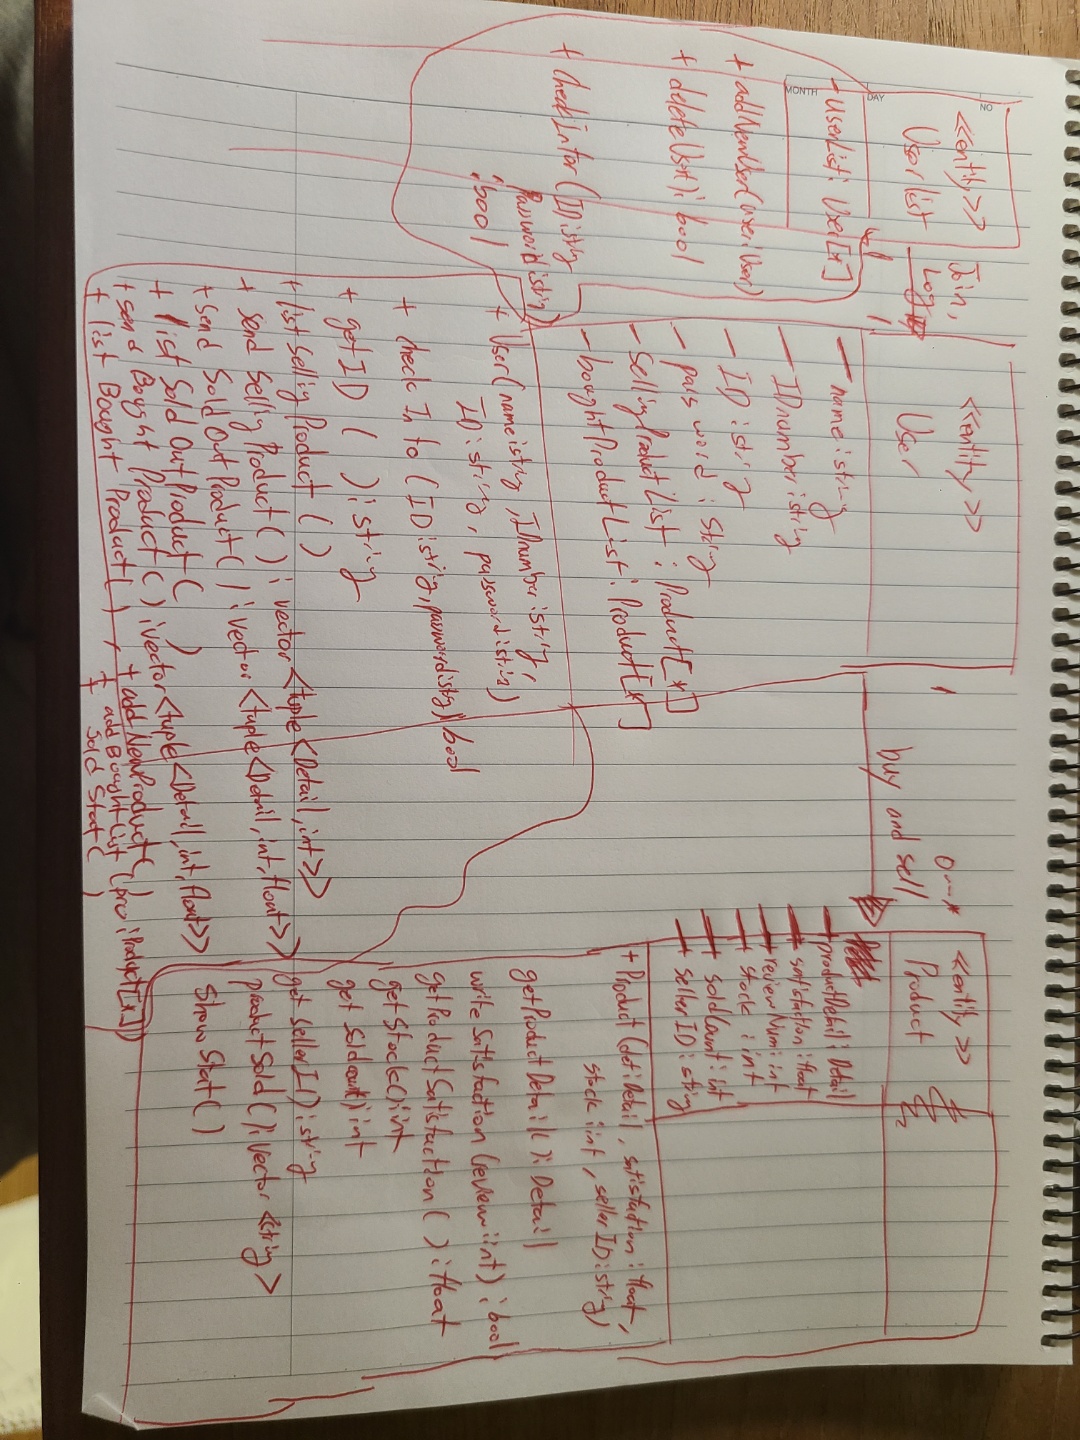 NO
MONTH
DAY
<<entity>>
User list
- UserList : User[*]
+ addNewUser(user:User)
+ deleteUser() : bool
+ checkInfor(ID:string
Password:string)
:bool
Join,
1
<<entity>>
User
- name:string
- IDnumber:string
- ID:string
- password:string
- SellingProductList : Product[*]
- boughtProductList : Product[*]
+ User(name:string, IDnumber:string,
ID:string, password:string)
+ check Info (ID:string, password:string) : bool
+ get ID ( ) : string
+ list Selling Product ( )
+ send Selling Product ( ) : vector <tuple <Detail, int>>
+ send Sold Out Product ( ) : vector <tuple <Detail, int, float>>
+ list Sold Out Product ( )
+ send Bought Product ( ) : vector <tuple <Detail, int, float>>
+ list Bought Product ( )
+ add NewProduct ( )
+ add Bought List (pro : Product[*])
+ Sold Start ( )
1
buy and sell
0...*
<<entity>>
Product
- productDetail : Detail
- satisfaction : float
- reviewNum : int
- stock : int
- soldCount : int
- sellerID : string
+ Product (det:Detail, satisfaction : float,
stock : int, seller ID:string)
getProductDetail( ) : Detail
write Satisfaction (review:int) : bool
getProductSatisfaction ( ) : float
getStock( ) : int
get soldcount( ) : int
get seller ID( ) : string
product Sold ( ) : Vector <string>
Show Stat( )